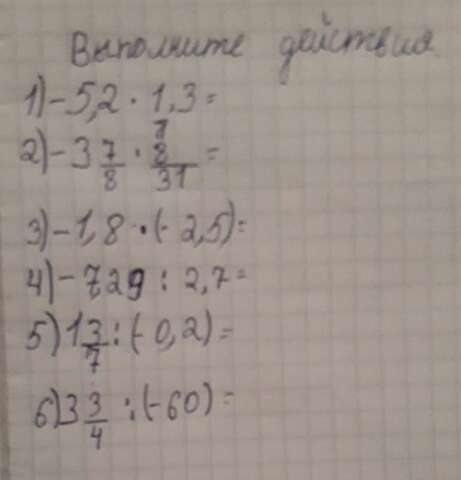 Выполните действия
1) -5,2 · 1,3 =
2) -3 7/8 · 8/31 =
3) -1,8 · (-2,5) =
4) -729 : 2,7 =
5) 1 3/7 : (-0,2) =
6) 3 3/4 : (-60) =